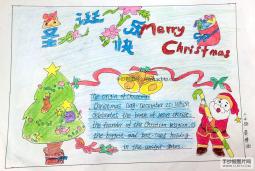 圣诞快乐
Merry
Christmas
The origin of Christmas
Christmas Day December 25 which
celebrates the birth of Jesus Christ
the founder of the Christian religion is
the biggest and best loved holiday
in the